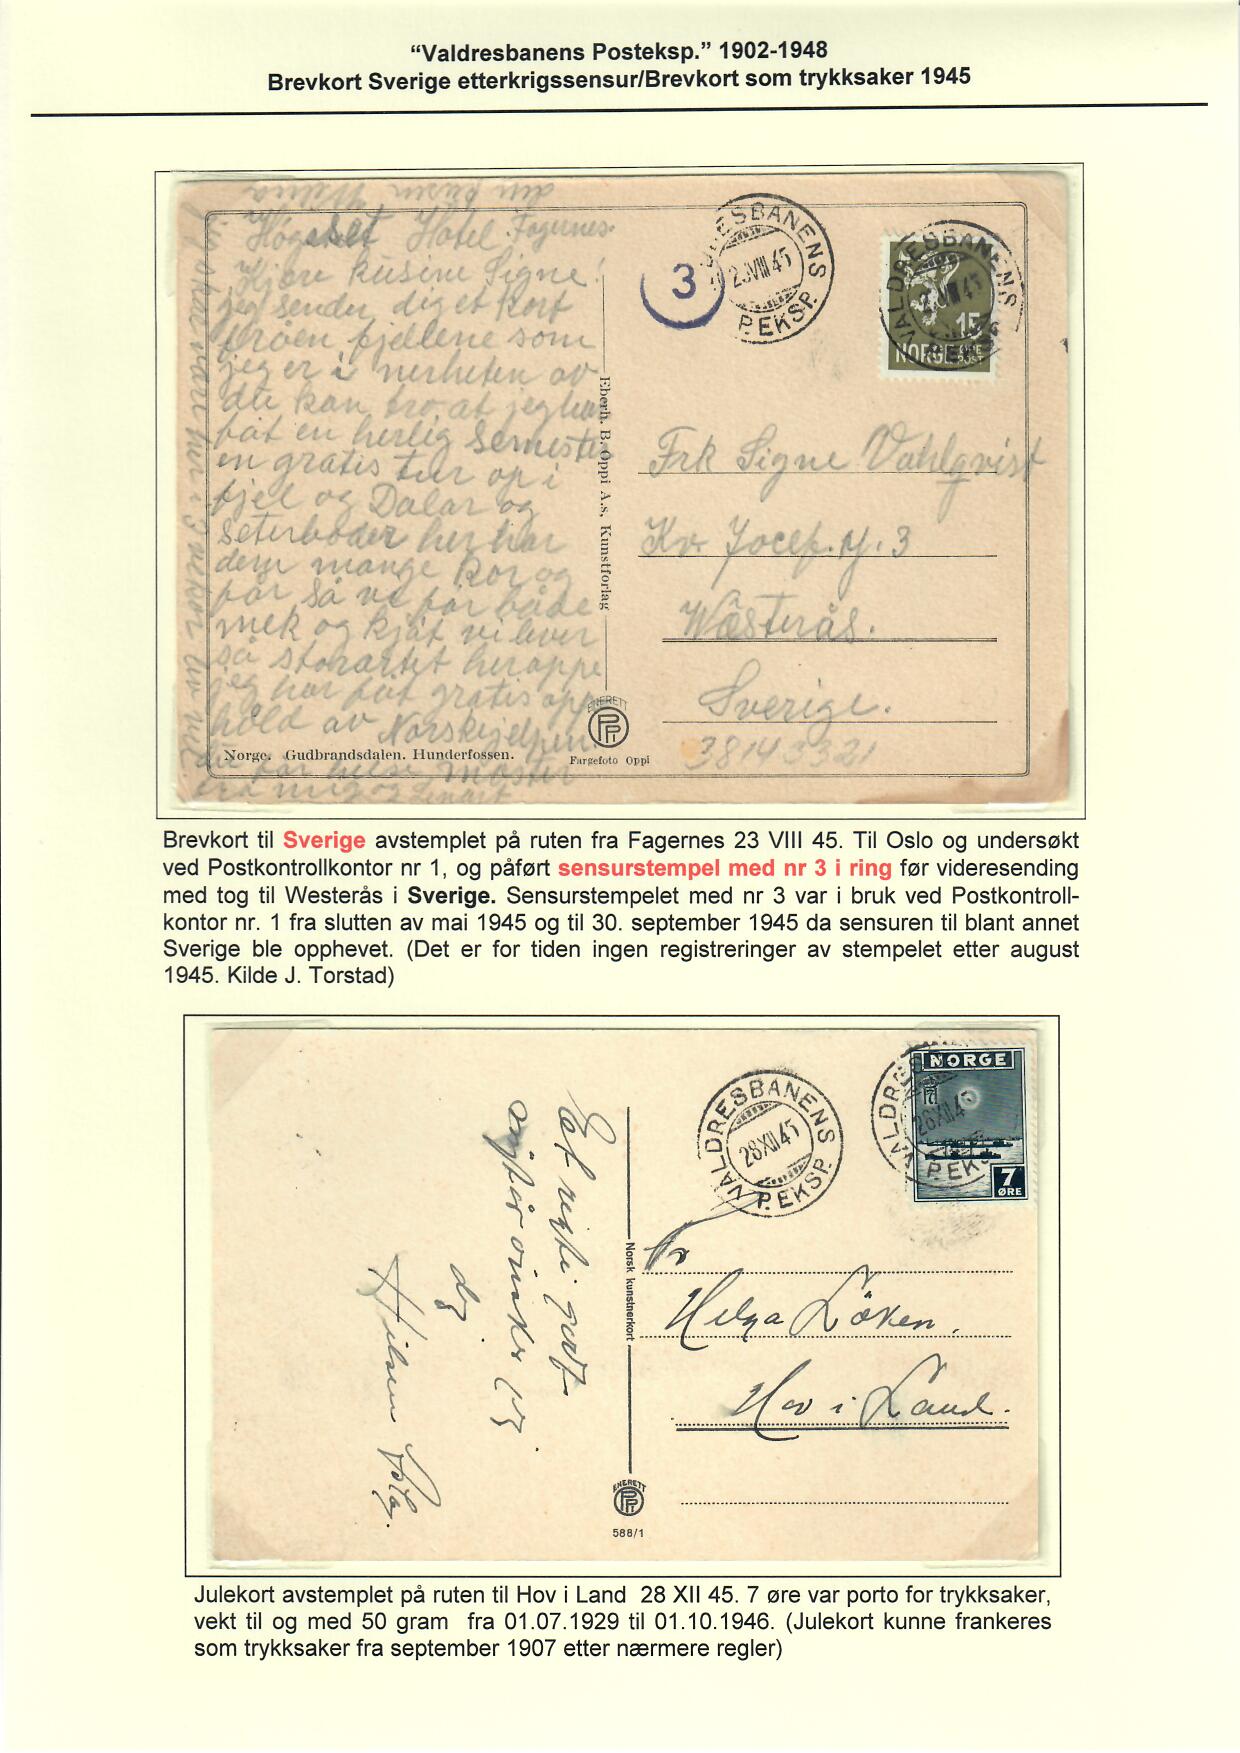 “Valdresbanens Posteksp.” 1902-1948
Brevkort Sverige etterkrigssensur/Brevkort som trykksaker 1945
Hotel Fagernes.
Kjære kusine Signe!
jeg sender dig et kort
frøen fjellene som
jeg er i nerheten av
du kan tro at jeg har
fåt en herlig Semester
en gratis tur op i
fjel og Dalar og
Seterboder her har
dem mange kor og
får så vi får både
melk og kjøt vi lever
så storartet her oppe
jeg har fåt gratis opp
hold av Norskjelpen
Norge. Gudbrandsdalen. Hunderfossen.
Eberh. B. Oppi A.s, Kunstforlag
ENERETT
Fargefoto Oppi
3
VALDRESBANENS
23 VIII 45
P.EKSP.
VALDRESBANENS
P.EKSP.
15
NORGE
ØRE
POST
Frk Signe Vahlqvist
Kv. Josef. N. 3
Wästerås.
Sverige.
38143321
Brevkort til Sverige avstemplet på ruten fra Fagernes 23 VIII 45. Til Oslo og undersøkt
ved Postkontrollkontor nr 1, og påført sensurstempel med nr 3 i ring før videresending
med tog til Westerås i Sverige. Sensurstempelet med nr 3 var i bruk ved Postkontroll-
kontor nr. 1 fra slutten av mai 1945 og til 30. september 1945 da sensuren til blant annet
Sverige ble opphevet. (Det er for tiden ingen registreringer av stempelet etter august
1945. Kilde J. Torstad)
Et rigti godt
nyttår ønskes
dig
Hilsen
Norsk kunstnerkort
ENERETT
588/1
VALDRESBANENS
28 XII 45
P.EKSP.
VALDRESBANENS
28 XII 45
P.EKSP.
NORGE
7
ØRE
Fr
Helga Löken.
Hov i Land.
Julekort avstemplet på ruten til Hov i Land 28 XII 45. 7 øre var porto for trykksaker,
vekt til og med 50 gram fra 01.07.1929 til 01.10.1946. (Julekort kunne frankeres
som trykksaker fra september 1907 etter nærmere regler)